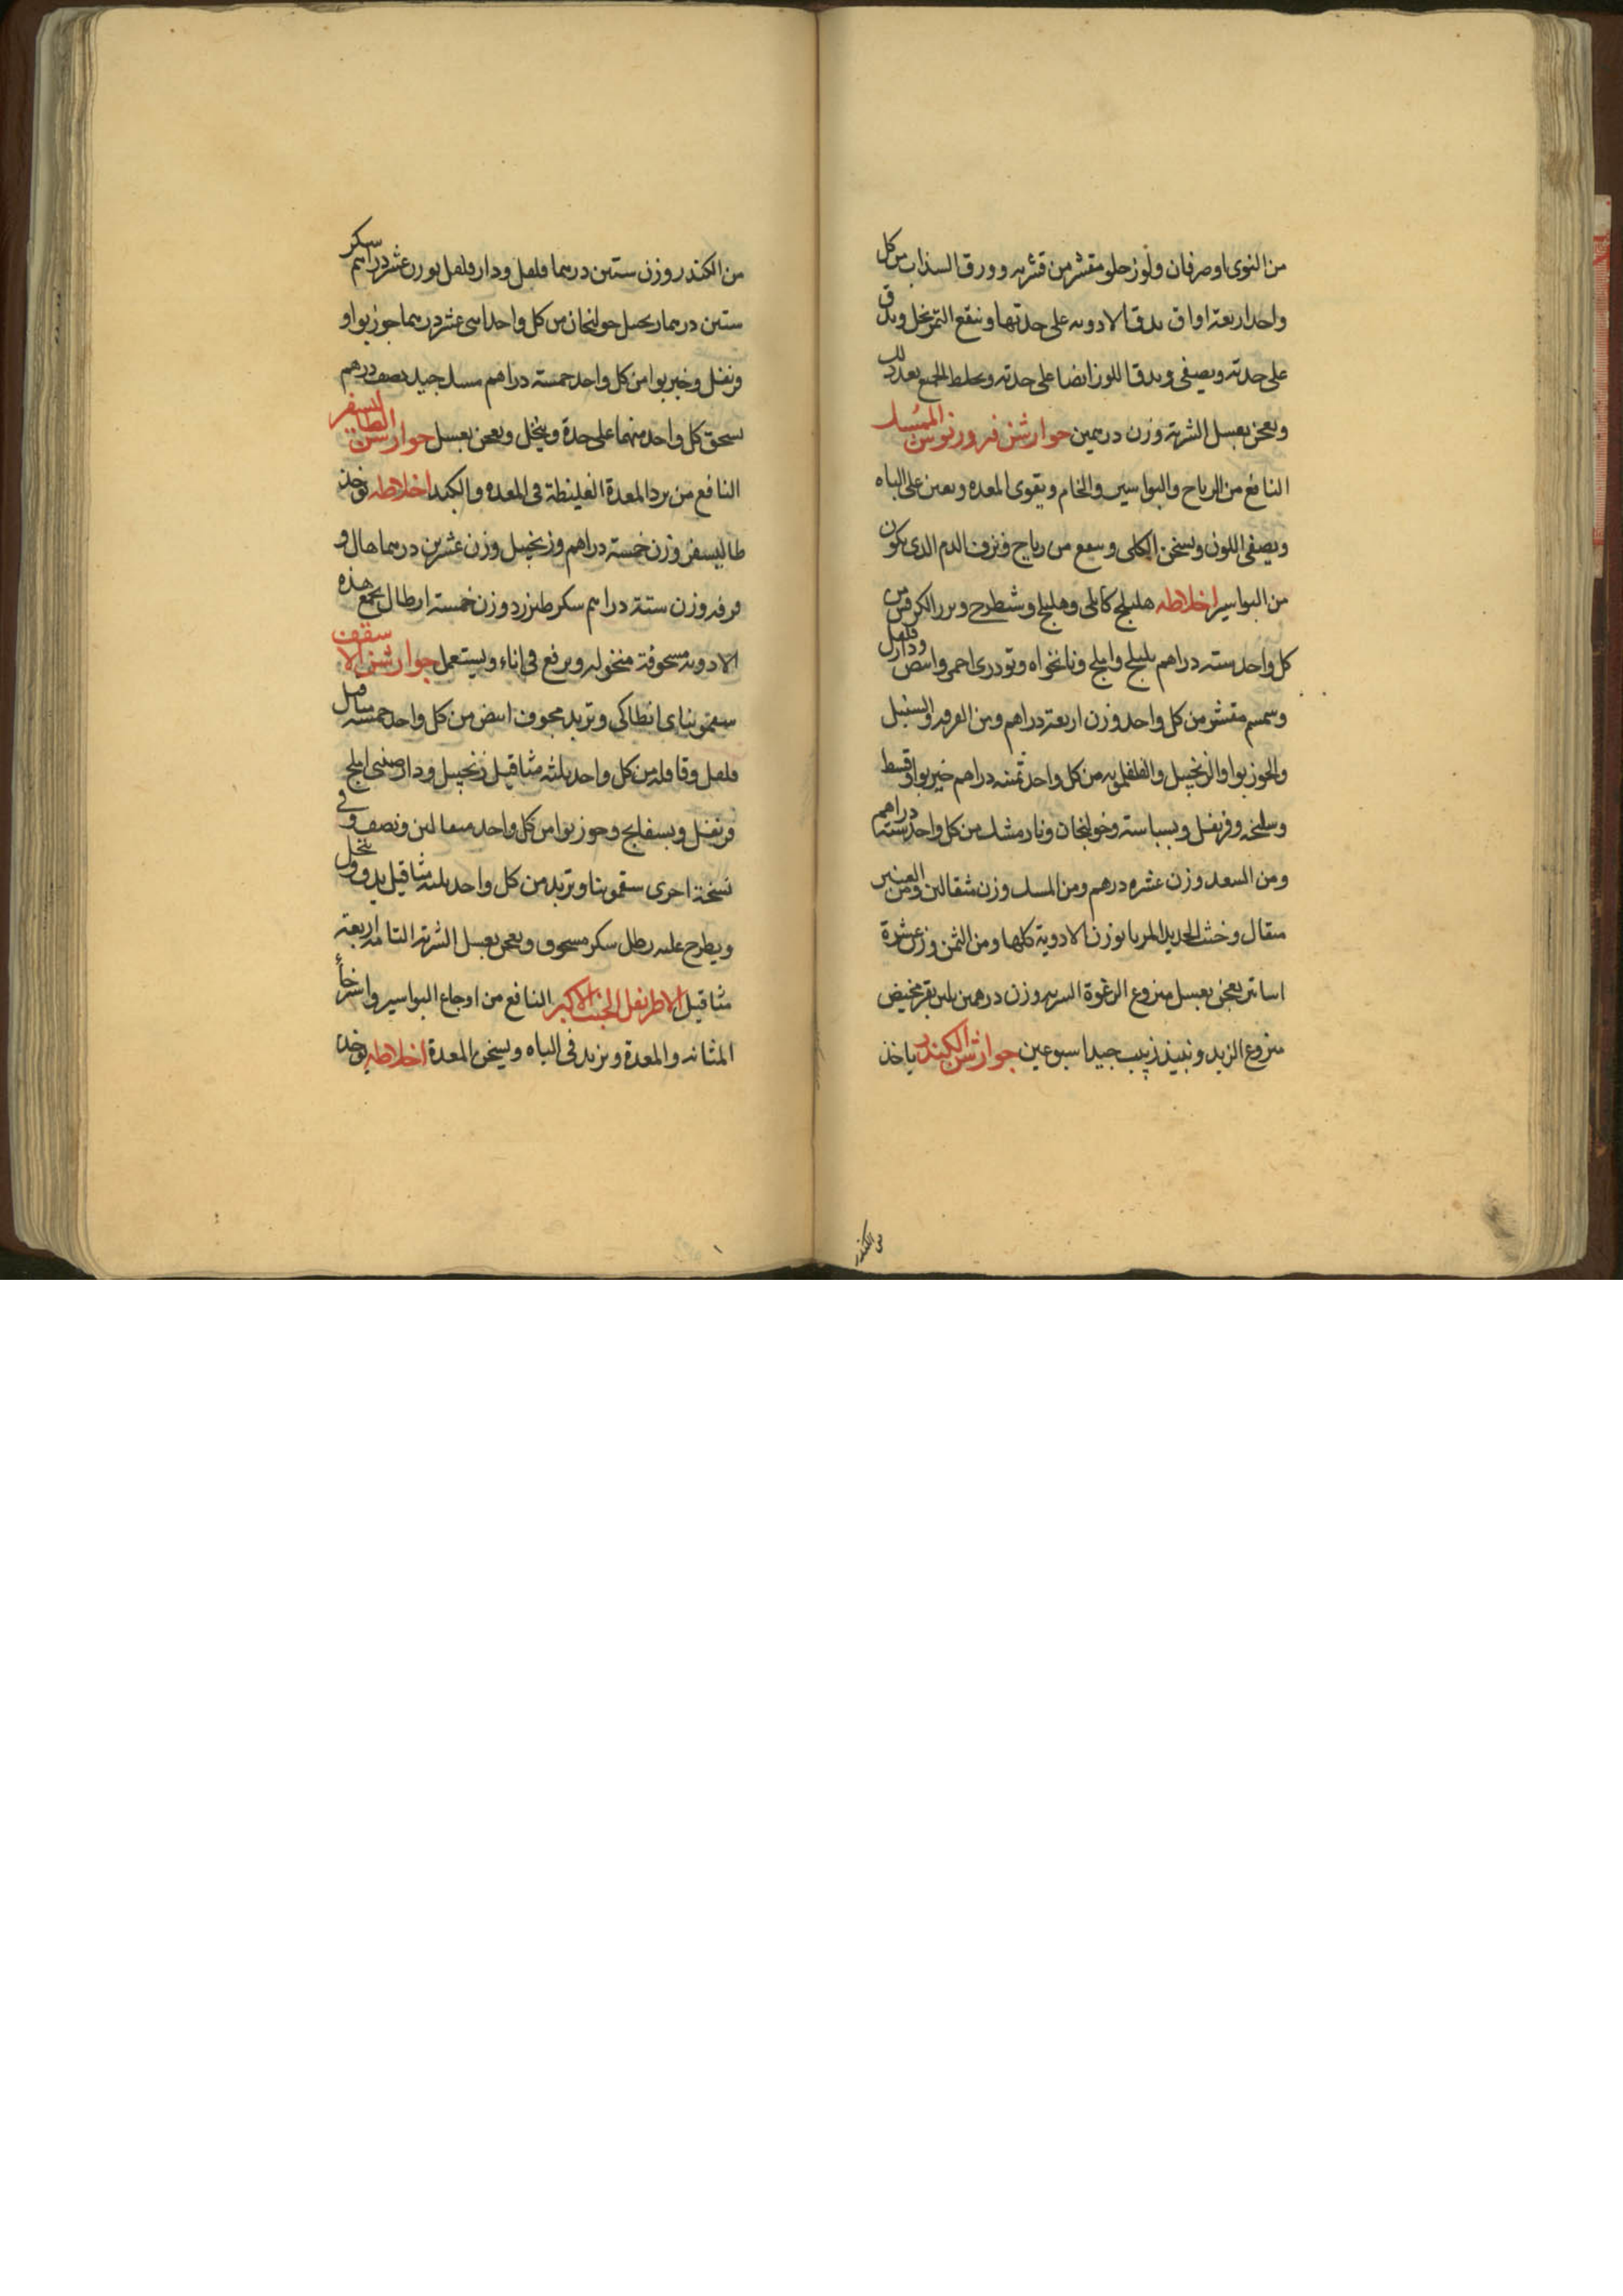 من النوى اوصرفان ولوز حلو مقشر من قشره وورق السذاب من كل
واحد اربعة اواق يدق الادويه على حدتها وينقع التمر بخل ويدق
على حدته ويصفى ويدق اللوز ايضا على حدته ويخلط الجميع بعد ذلك
ويعجن بعسل الشربة وزن درهمين جوارشن فيروزنوش الممسك
النافع من الرياح والبواسير والخام ويقوى المعده ويعين على الباه
ويصفى اللون ويسخن الكلى وينفع من رياح ونزف الدم الذى يكون
من البواسير اخلاطه هليلج كابلى وهليلج وشطرج وبزر الكرفس من
كل واحد سته دراهم بليلج واملج ونانخواه وتودرى احمر وابيض ودارفلفل
وسمسم مقشر من كل واحد وزن اربعة دراهم ومن القرفه والسنبل
والجوزبوا والزنجبيل والفلفلمويه من كل واحد ثمنيه دراهم خيربوا وقسط
وسليخه وقرنفل وبسباسة وخولنجان ونارمشك من كل واحد سته دراهم
ومن السعد وزن عشره درهم ومن المسك وزن مثقالين ومن العنبر
مثقال وخبث الحديد المربا بوزن الادوية كلها ومن الثمن وزن عشرة
اساتير يعجن بعسل منزوع الرغوة الشربه وزن درهمين بلبن بقر مخيض
منزوع الزبد ونبيذ زبيب جيد اسبوعين جوارشن الكندر ياخذ
من الكندر
من الكندر وزن ستين درهما فلفل ودارفلفل بوزن عشر دراهم سكر
ستين درهما زنجبيل خولنجان من كل واحد اثنى عشر درهما جوزبوا و
قرنفل وخيربوا من كل واحد خمسة دراهم مسك جيد نصف درهم
يسحق كل واحد منهما على حدة وينخل ويعجن بعسل جوارشن الطاليسفر
النافع من برد المعدة الغليظة فى المعده والكبد اخلاطه يوخذ
طاليسفر وزن خمسة دراهم وزنجبيل وزن عشرين درهما هال و
قرفه وزن ستة دراهم سكر طبرزد وزن خمسة ارطال يجمع هذه
الادويه مسحوقة منخوله ويرفع فى اناء ويستعمل جوارشن الاسقف
سقمونياى انطاكى وتربد مجوف ابيض من كل واحد خمسه مثاقيل
فلفل وقاقله من كل واحد ثلثه مثاقيل زنجبيل ودارصينى املج
قرنفل وبسفايج وجوزبوا من كل واحد مثقالين ونصف وفى
نسخة اخرى سقمونيا وتربد من كل واحد ثلثه مثاقيل يدق وينخل
ويطرح عليه رطل سكر مسحوق ويعجن بعسل الشربة التامه اربعة
مثاقيل الاطريفل الخبث الاكبر النافع من اوجاع البواسير واسترخاء
المثانه والمعدة ويزيد فى الباه ويسخن المعدة اخلاطه يوخذ